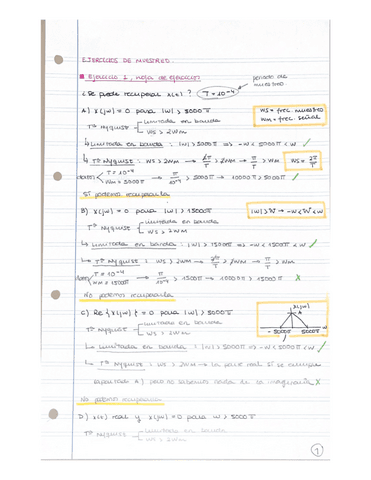 EJERCICIOS DE MUESTREO
■ Ejercicio 1, hoja de ejercicios
¿Se puede recuperar x(t)? T = 10⁻⁴ periodo de muestreo
A) X(jw) = 0 para |w| > 5000π
Ws = frec. muestreo
Wm = frec. señal
Tª Nyquist
Limitada en banda
Ws > 2Wm
↳ Limitada en banda: |w| > 5000π => -W < 5000π < W ✓
↳ Tª Nyquist: Ws > 2Wm → 2π/T > 2Wm → π/T > Wm Ws = 2π/T
datos T = 10⁻⁴ Wm = 5000π → π/10⁻⁴ > 5000π → 10000π > 5000π ✓
Sí podemos recuperarla
B) X(jw) = 0 para |w| > 15000π
Tª Nyquist
Limitada en banda
Ws > 2Wm
↳ Limitada en banda: |w| > 15000π => -W < 15000π < W ✓
↳ Tª Nyquist: Ws > 2Wm → 2π/T > 2Wm → π/T > Wm
datos T = 10⁻⁴ Wm = 15000π → π/10⁻⁴ > 15000π → 10000π > 15000π X
No podemos recuperarla
C) Re{X(jw)} = 0 para |w| > 5000π
X(jw)
A
-5000π 5000π w
Tª Nyquist
Limitada en banda
Ws > 2Wm
↳ Limitada en banda: |w| > 5000π => -W < 5000π < W ✓
↳ Tª Nyquist: Ws > 2Wm → la parte real sí se cumple
(apartado A) pero no sabemos nada de la imaginaria X
No podemos recuperarla
D) x(t) real y X(jw) = 0 para w > 5000π
Tª Nyquist
Limitada en banda
Ws > 2Wm
1